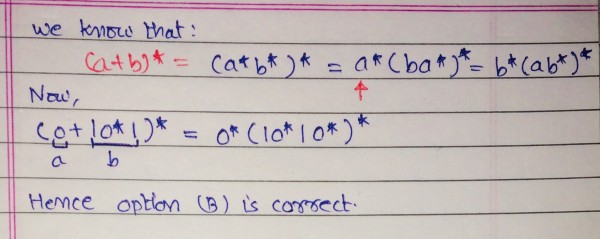 We know that:
(a+b)* = (a*b*)* = a*(ba*)* = b*(ab*)*
Now,
(0+10*1)* = 0*(10*10*)*
a b
Hence option (B) is correct.